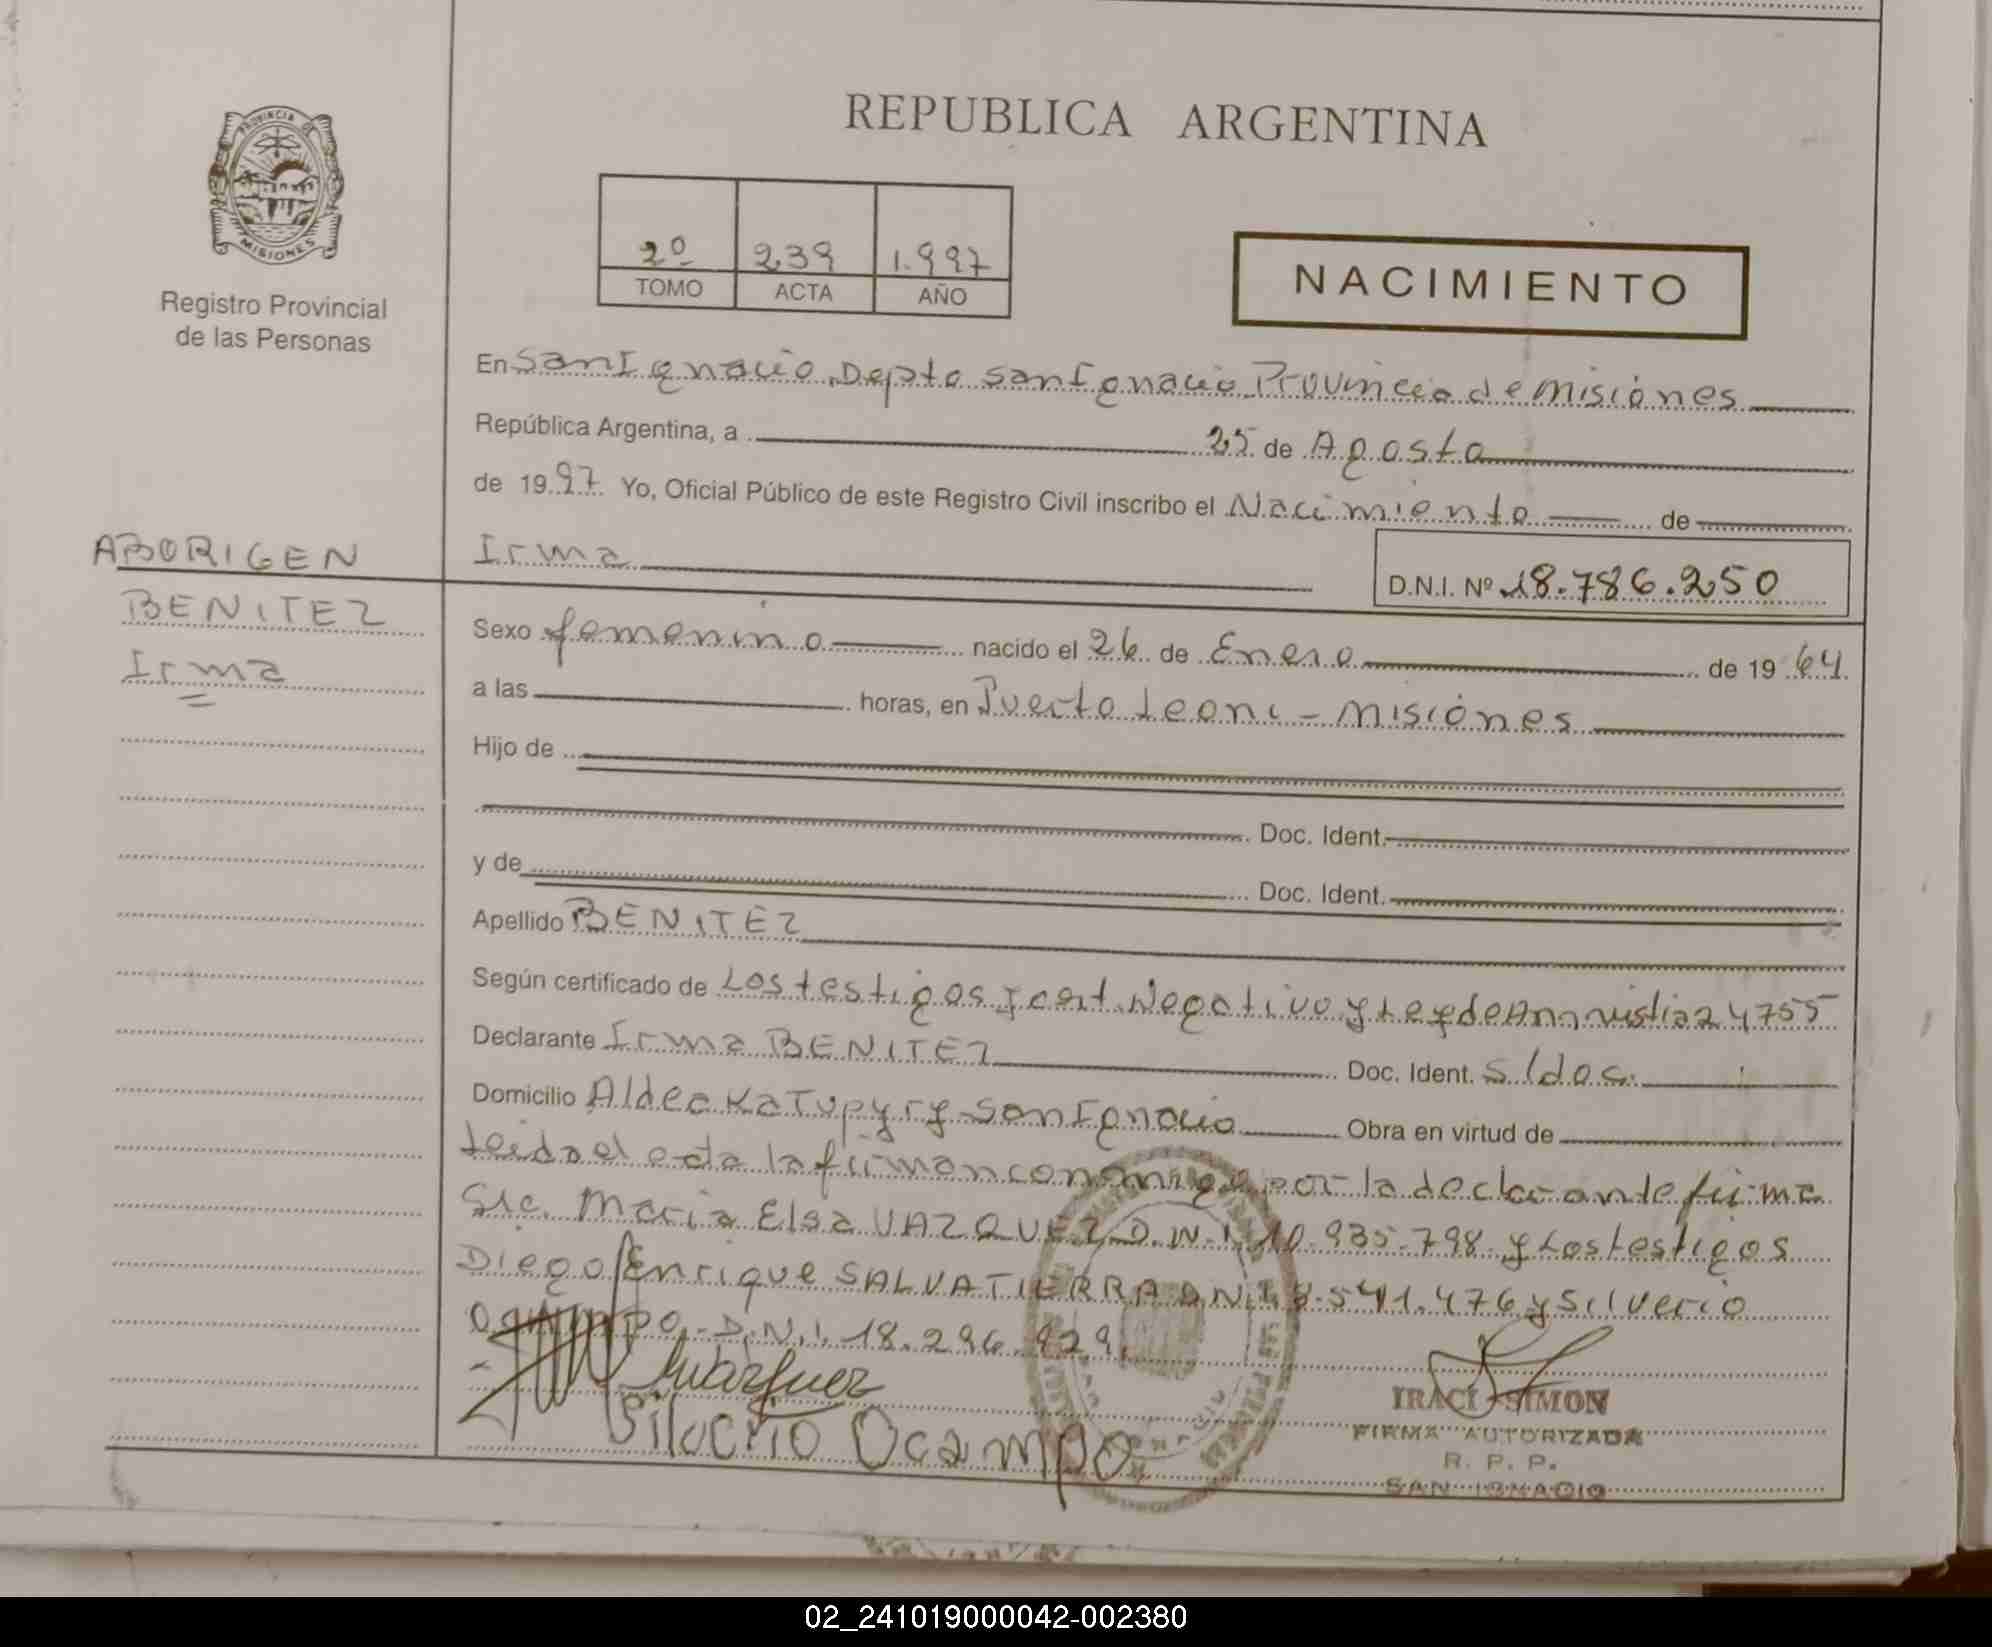 REPUBLICA ARGENTINA
PROVINCIA DE
MISIONES
Registro Provincial
de las Personas
2º 239 1.997
TOMO ACTA AÑO
NACIMIENTO
En San Ignacio Depto San Ignacio Provincia de Misiones
República Argentina, a 25 de Agosto
de 1997 Yo, Oficial Público de este Registro Civil inscribo el Nacimiento de
Irma
D.N.I. Nº 18.786.250
ABORIGEN
BENITEZ
Irma
Sexo femenino nacido el 26 de Enero de 1964
a las horas, en Puerto Leoni - Misiones
Hijo de
Doc. Ident.
y de Doc. Ident.
Apellido BENITEZ
Según certificado de Los testigos y cert. Negativo y Ley de Amnistia 24755
Declarante Irma BENITEZ Doc. Ident. S/doc.
Domicilio Aldea Katupyry San Ignacio Obra en virtud de
Leida el acta la firman conmigo por la declarante firma
Sra. Maria Elsa VAZQUEZ D.N.I. 10.935.798 y Los testigos
Diego Enrique SALVATIERRA DNI 8.541.476 y Silverio
Ocampo D.N.I. 18.296.929
Silverio Ocampo
IRACI SIMON
FIRMA AUTORIZADA
R. P. P.
SAN IGNACIO
02_241019000042-002380